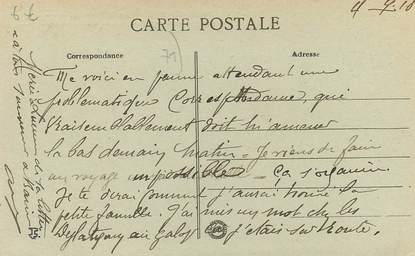 4-9-18
CARTE POSTALE
Correspondance
Adresse
75
Me voici en panne attendant une
problématique Correspondance, qui
Vraisemblablement doit m'amener
là bas demain matin = Je viens de faire
un voyage impossible = Ça s'organise
Je te dirai comment j'aurai trouvé la
petite famille. J'ai mis un mot chez les
au Galop j'étais sur Route.
Merci de ta lettre